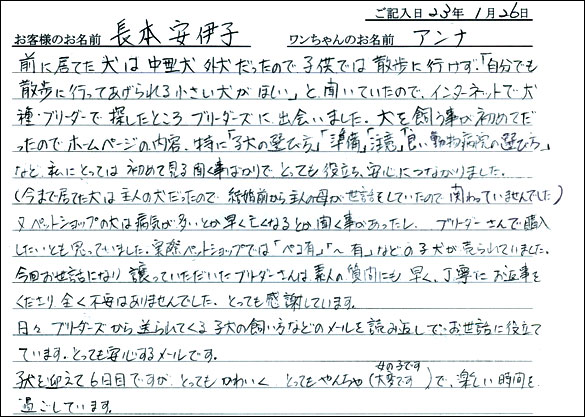 ご記入日 23年 1月26日
お客様のお名前 長本 安伊子 ワンちゃんのお名前 アンナ
前に居てた犬は中型犬 外犬だったので子供では散歩に行けず、「自分でも
散歩に行ってあげられる小さい犬がほしい」と聞いていたので、インターネットで犬
種・ブリーダーで探したところブリーダーズに出会いました。犬を飼う事が初めてだ
ったのでホームページの内容、特に「子犬の選び方」「準備」「注意」「良い動物病院の選び方」
など、私にとっては初めて見る聞く事ばかりでとっても役立ち、安心につながりました。
(今まで居てた犬は主人の犬だったので 結婚前から主人の母が世話をしていたので関わっていませんでした)
又ペットショップの犬は病気が多いとか早く亡くなるとか聞く事があったし、 ブリーダーさんで購入
したいとも思っていました。実際ペットショップでは「ペコ有」「〜有」などの子犬が売られていました。
今回お世話になり 譲っていただいたブリーダーさんは素人の質問にも早く、丁寧にお返事を
くださり全く不安はありませんでした。とっても感謝しています。
日々 ブリーダーズから送られてくる子犬の飼い方などのメールを読み返しでお世話に役立て
ています。とっても安心するメールです。
子犬を迎えて6日目ですが、とってもかわいく とってもやんちゃ(女の子です 大変です)で、楽しい時間を
過ごしています。